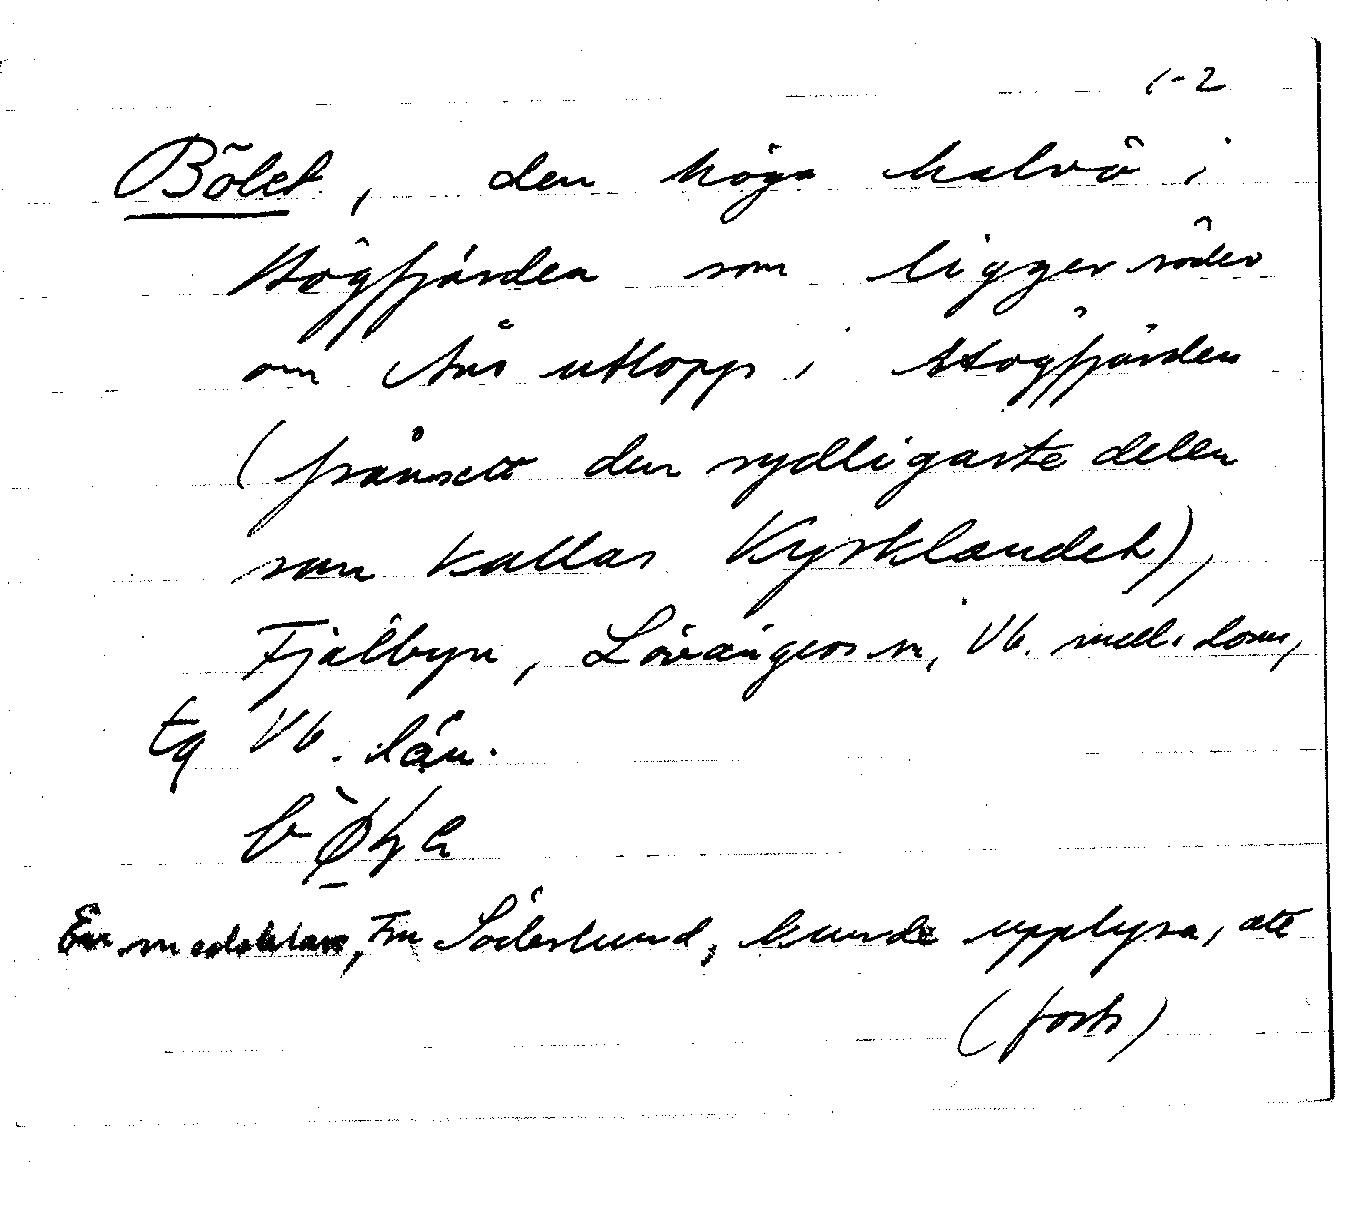 1-2
Bölet, den höga halvö i
Högfjärden som ligger söder
om Åns utlopp i Högfjärden
(frånsett den sydligaste delen
som kallas Kyrklandet),
Fjälbyn, Lövångers sn, Vb. mell. doms,
tg Vb. län.
En meddelare, Fru Söderlund, kunde upplysa, att
(forts)